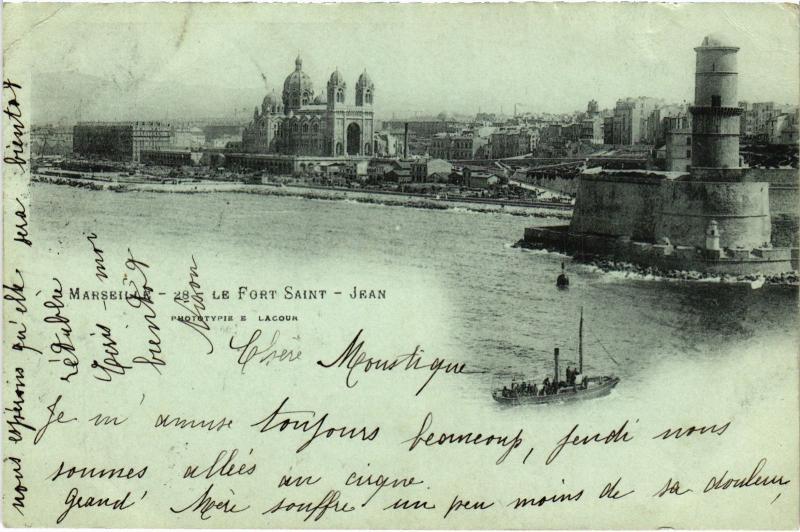 MARSEILLE - 28 - LE FORT SAINT - JEAN
PHOTOTYPIE E. LACOUR
Chère Moustique
Je m'amuse toujours beaucoup, jeudi nous
sommes allées au cirque.
Grand' Mère souffre un peu moins de sa douleur,
nous espérons qu'elle sera bientôt
rétablie
Ecris-moi
bientôt
Ninon